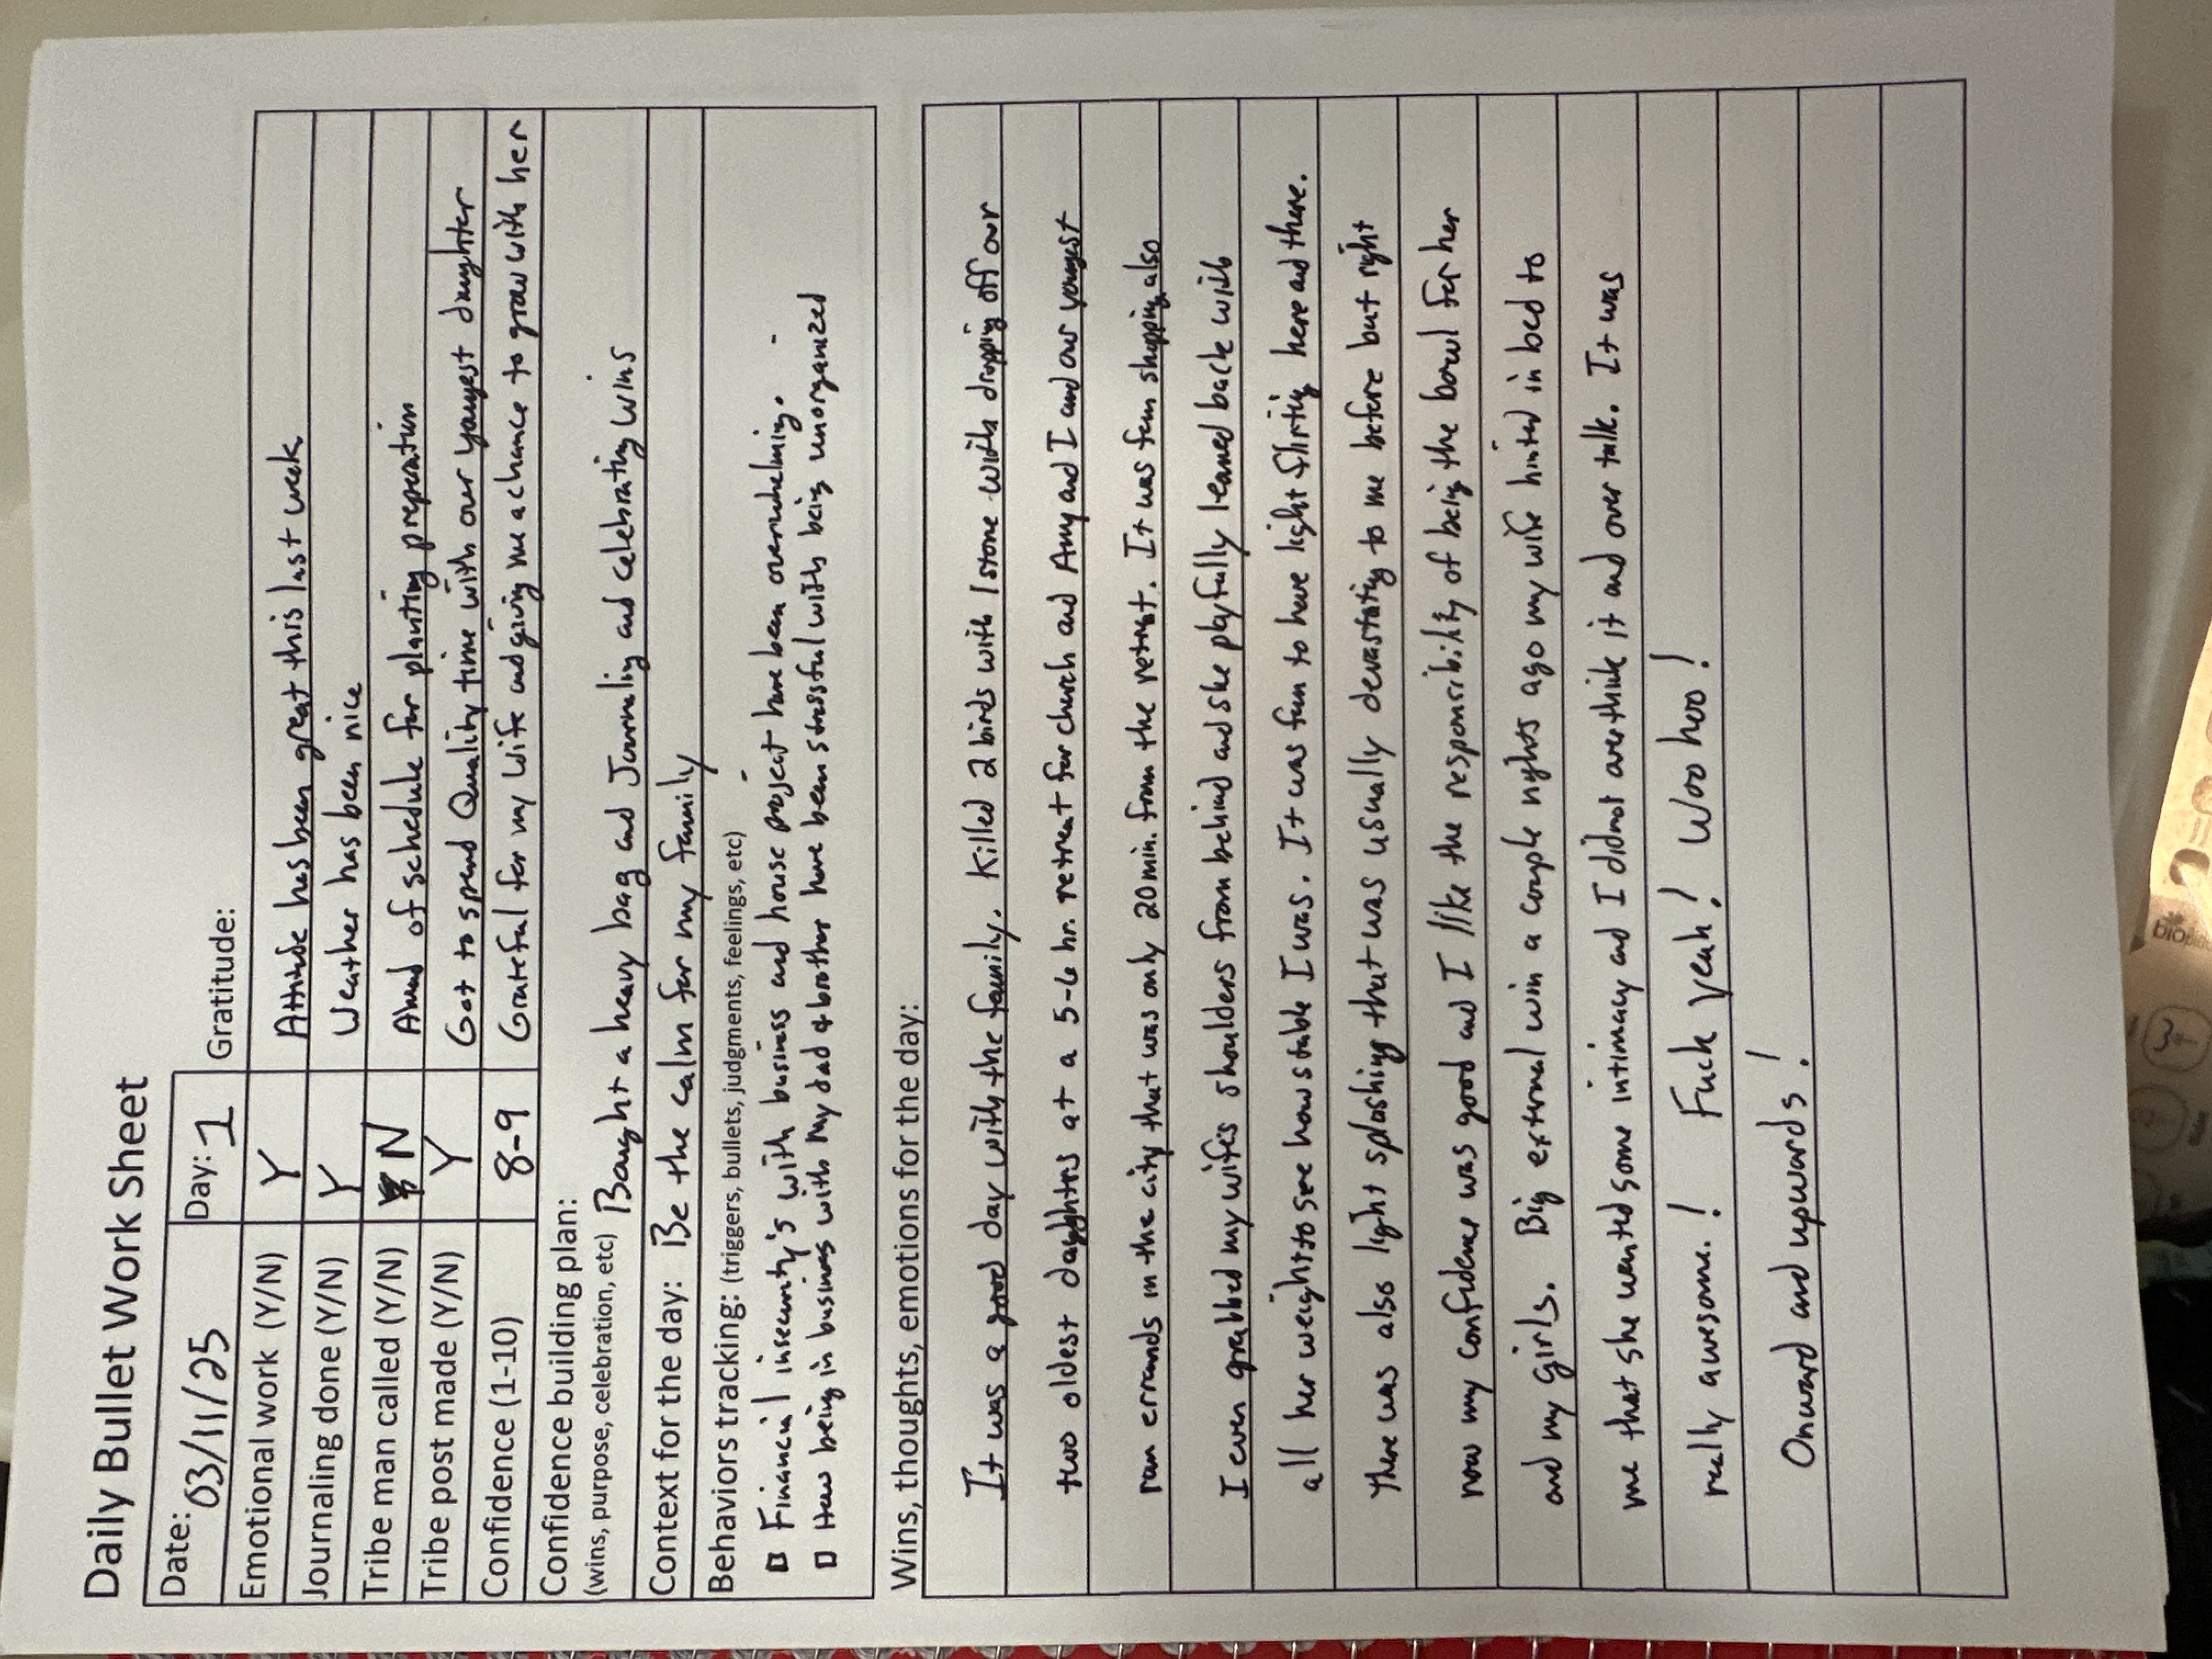 Daily Bullet Work Sheet
Date: 03/11/25 Day: 1 Gratitude:
Emotional work (Y/N) Y Attitude has been great this last week
Journaling done (Y/N) Y Weather has been nice
Tribe man called (Y/N) N Ahead of schedule for planting preperation
Tribe post made (Y/N) Y Got to spend Quality time with our youngest daughter
Confidence (1-10) 8-9 Grateful for my wife and giving me a chance to grow with her
Confidence building plan:
(wins, purpose, celebration, etc) Bought a heavy bag and Journaling and celebrating wins
Context for the day: Be the calm for my family
Behaviors tracking: (triggers, bullets, judgments, feelings, etc)
Financial insecurity's with business and house project have been overwhelming.
How being in business with my dad & brother have been stressful with being unorganized
Wins, thoughts, emotions for the day:
It was a good day with the family. Killed 2 birds with 1 stone with dropping off our
two oldest daughters at a 5-6 hr. retreat for church and Amy and I and our youngest
ran errands in the city that was only 20 min. from the retreat. It was fun shopping also
I even grabbed my wifes shoulders from behind and she playfully leaned back with
all her weight to see how stable I was. It was fun to have light flirting here and there.
There was also light splashing that was usually devastating to me before but right
now my confidence was good and I like the responsibility of being the bowl for her
and my girls. Big external win a couple nights ago my wife hinted in bed to
me that she wanted some intimacy and I did not overthink it and over talk. It was
really awesome! Fuck yeah! Woo hoo!
Onward and upwards!